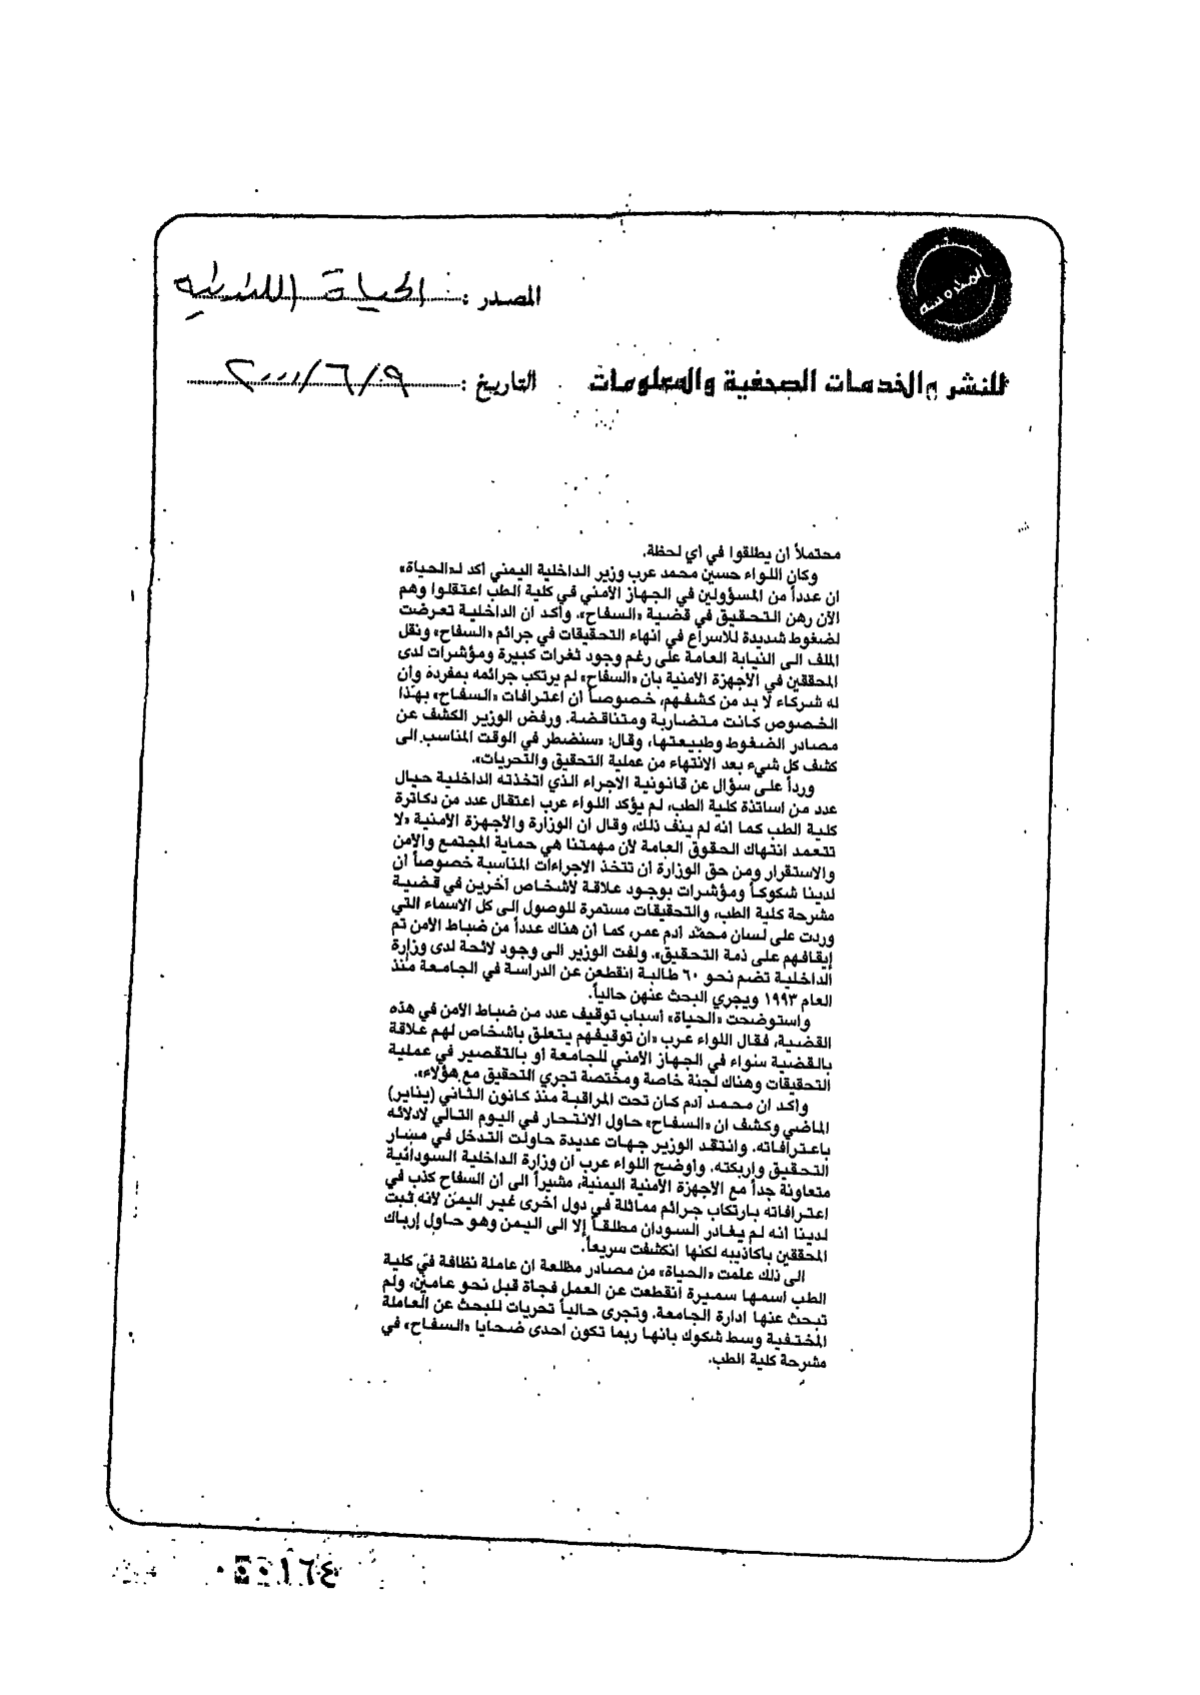 المصدر : الحياة اللندنية
للنشر والخدمات الصحفية والمعلومات
التاريخ : ٩/٦/٢٠٠٠
محتملاً ان يطلقوا في أي لحظة.
وكان اللواء حسين محمد عرب وزير الداخلية اليمني أكد لـ«الحياة»
ان عدداً من المسؤولين في الجهاز الأمني في كلية الطب اعتقلوا وهم
الآن رهن التحقيق في قضية «السفاح». وأكد ان الداخلية تعرضت
لضغوط شديدة للاسراع في انهاء التحقيقات في جرائم «السفاح» ونقل
الملف الى النيابة العامة على رغم وجود ثغرات كبيرة ومؤشرات لدى
المحققين في الأجهزة الأمنية بأن «السفاح» لم يرتكب جرائمه بمفرده وأن
له شركاء لا بد من كشفهم، خصوصاً أن اعترافات «السفاح» بهذا
الخصوص كانت متضاربة ومتناقضة. ورفض الوزير الكشف عن
مصادر الضغوط وطبيعتها، وقال: «سنضطر في الوقت المناسب الى
كشف كل شيء بعد الانتهاء من عملية التحقيق والتحريات».
ورداً على سؤال عن قانونية الاجراء الذي اتخذته الداخلية حيال
عدد من اساتذة كلية الطب، لم يؤكد اللواء عرب اعتقال عدد من دكاترة
كلية الطب كما أنه لم ينف ذلك، وقال ان الوزارة والأجهزة الأمنية «لا
تتعمد انتهاك الحقوق العامة لأن مهمتنا هي حماية المجتمع والأمن
والاستقرار ومن حق الوزارة ان تتخذ الاجراءات المناسبة خصوصاً ان
لدينا شكوكاً ومؤشرات بوجود علاقة لأشخاص آخرين في قضية
مشرحة كلية الطب، والتحقيقات مستمرة للوصول الى كل الاسماء التي
وردت على لسان محمد آدم عمر، كما أن هناك عدداً من ضباط الأمن تم
إيقافهم على ذمة التحقيق». ولفت الوزير الى وجود لائحة لدى وزارة
الداخلية تضم نحو ٦٠ طالبة انقطعن عن الدراسة في الجامعة منذ
العام ١٩٩٣ ويجري البحث عنهن حالياً.
واستوضحت «الحياة» أسباب توقيف عدد من ضباط الأمن في هذه
القضية، فقال اللواء عرب «ان توقيفهم يتعلق بأشخاص لهم علاقة
بالقضية سواء في الجهاز الأمني للجامعة أو بالتقصير في عملية
التحقيقات وهناك لجنة خاصة ومختصة تجري التحقيق مع هؤلاء».
وأكد ان محمد آدم كان تحت المراقبة منذ كانون الثاني (يناير)
الماضي وكشف ان «السفاح» حاول الانتحار في اليوم التالي لادلائه
باعترافاته. وانتقد الوزير جهات عديدة حاولت التدخل في مسار
التحقيق وإربكته. وأوضح اللواء عرب ان وزارة الداخلية السودانية
متعاونة جداً مع الأجهزة الأمنية اليمنية، مشيراً الى أن السفاح كذب في
اعترافاته بارتكاب جرائم مماثلة في دول أخرى غير اليمن لأنه ثبت
لدينا أنه لم يغادر السودان مطلقاً إلا الى اليمن وهو حاول إرباك
المحققين بأكاذيبه لكنها انكشفت سريعاً.
الى ذلك علمت «الحياة» من مصادر مطلعة ان عاملة نظافة في كلية
الطب اسمها سميرة انقطعت عن العمل فجأة قبل نحو عامين، ولم
تبحث عنها ادارة الجامعة. وتجرى حالياً تحريات للبحث عن العاملة
المختفية وسط شكوك بأنها ربما تكون احدى ضحايا «السفاح» في
مشرحة كلية الطب.